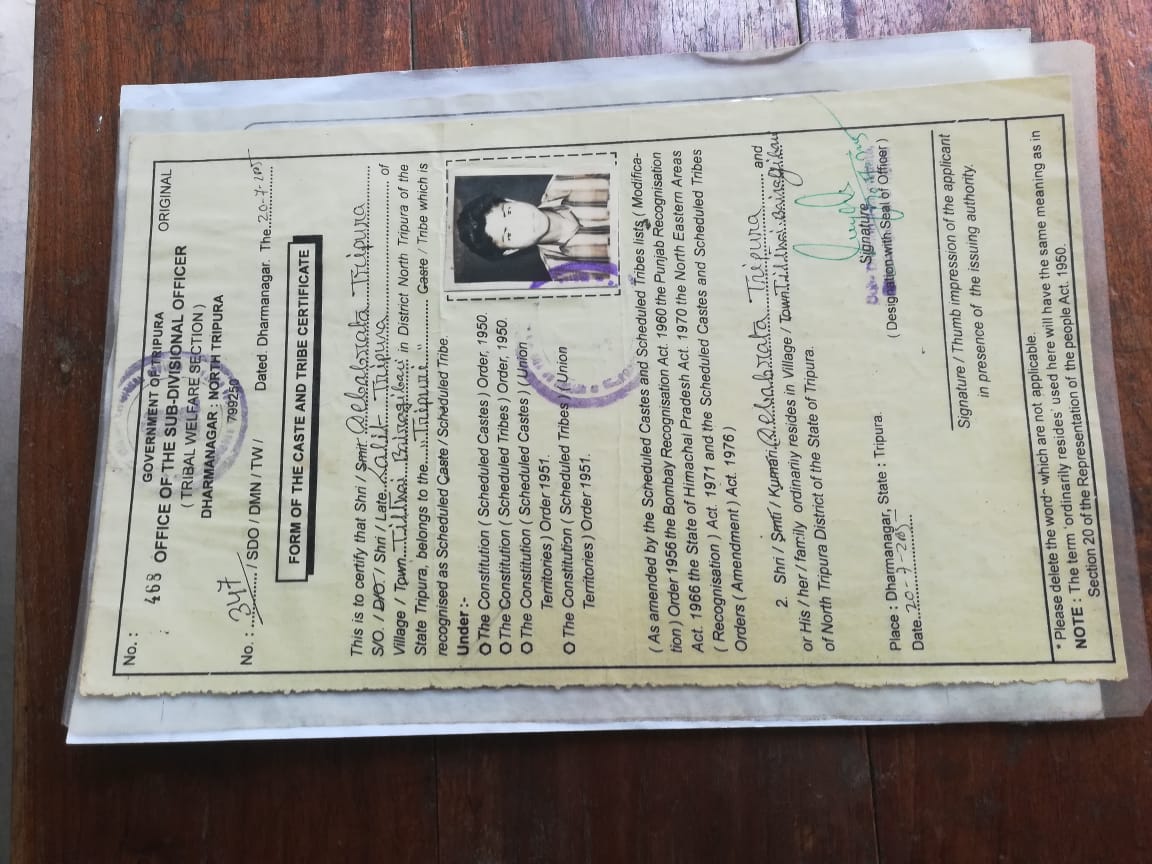 No. :
468
GOVERNMENT OF TRIPURA
ORIGINAL
OFFICE OF THE SUB-DIVISIONAL OFFICER
( TRIBAL WELFARE SECTION )
DHARMANAGAR : NORTH TRIPURA
799250
No. : 347 / SDO / DMN / TW /
Dated. Dharmanagar. The..20-7-2005
FORM OF THE CASTE AND TRIBE CERTIFICATE
This is to certify that Shri / Smit. Debabrata Tripura
S/O. / D/O. / Shri / Late. Lalit Tripura of
Village / Town. Tilthai Bairagibari in District North Tripura of the
State Tripura, belongs to the "Tripuri" Caste / Tribe which is
recognised as Scheduled Caste / Scheduled Tribe.
Under :-
The Constitution ( Scheduled Castes ) Order, 1950.
The Constitution ( Scheduled Tribes ) Order, 1950.
The Constitution ( Scheduled Castes ) ( Union
Territories ) Order 1951.
The Constitution ( Scheduled Tribes ) ( Union
Territories ) Order 1951.
( As amended by the Scheduled Castes and Scheduled Tribes lists ( Modifica-
tion ) Order 1956 the Bombay Recognisation Act. 1960 the Punjab Recognisation
Act. 1966 the State of Himachal Pradesh Act. 1970 the North Eastern Areas
( Recognisation ) Act. 1971 and the Scheduled Castes and Scheduled Tribes
Orders ( Amendment ) Act. 1976 )
2. Shri / Smti / Kumari. Debabrata Tripura and
or His / her / family ordinarily resides in Village / Town Tilthai Bairagibari
of North Tripura District of the State of Tripura.
Signature
( Designation with Seal of Officer )
Place : Dharmanagar, State : Tripura.
Date..20-7-2005
Signature / Thumb impression of the applicant
in presence of the issuing authority.
* Please delete the word which are not applicable.
NOTE : The term 'ordinarily resides' used here will have the same meaning as in
Section 20 of the Representation of the people Act. 1950.